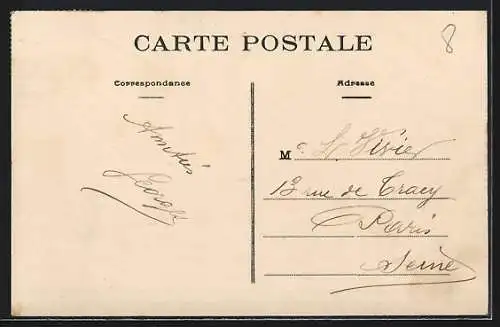 CARTE POSTALE
8
Correspondance
Adresse
Amitiés
M
13 rue de Tracy
Paris
Seine